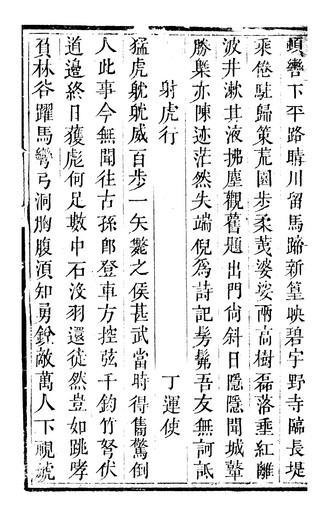 頓轡下平路晴川留馬蹄新篁映碧宇野寺臨長堤
乘倦駐歸策荒園步柔荑婆娑兩高樹磊落垂紅離
波井漱其液拂塵觀舊題出門尙斜日隱隱聞城鼙
勝槩亦陳迹茫然失端倪爲詩記髣髴吾友無訶詆
射虎行
丁運使
猛虎眈眈威百步一矢斃之侯甚武當時得雋驚倒
人此事今無聞往古孫郎登車方控弦千鈞竹弩伏
道邊終日獲彪何足數中石沒羽還徒然豈如跳哮
負林谷躍馬彎弓洞胸腹須知勇銳敵萬人下視虢